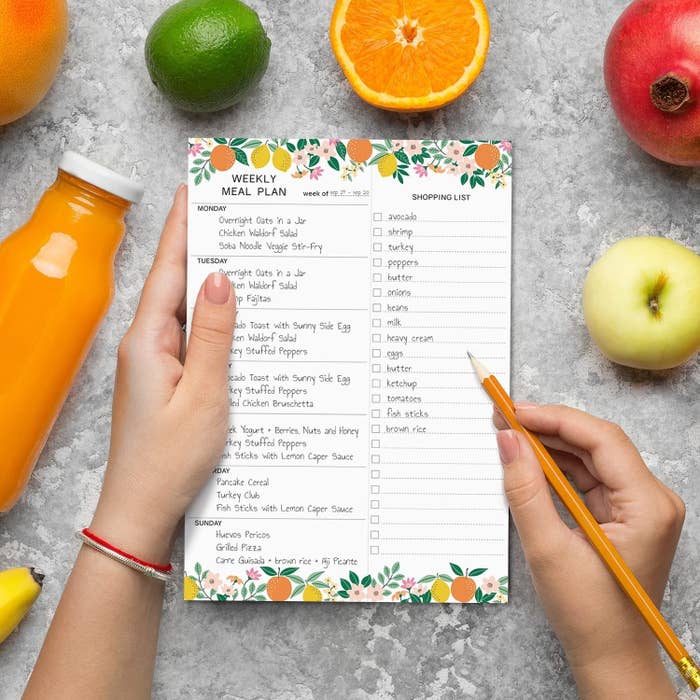 WEEKLY
MEAL PLAN
week of
MONDAY
Overnight Oats in a Jar
Chicken Waldorf Salad
Soba Noodle Veggie Stir-Fry
TUESDAY
Overnight Oats in a Jar
Waldorf Salad
Fajitas
Toast with Sunny Side Egg
Waldorf Salad
Stuffed Peppers
Toast with Sunny Side Egg
Turkey Stuffed Peppers
Chicken Bruschetta
Yogurt + Berries, Nuts and Honey
Turkey Stuffed Peppers
Fish Sticks with Lemon Caper Sauce
Pancake Cereal
Turkey Club
Fish Sticks with Lemon Caper Sauce
SUNDAY
Huevos Pericos
Grilled Pizza
Carne Guisada + brown rice + Aji Picante
SHOPPING LIST
avocado
shrimp
turkey
peppers
butter
onions
beans
milk
heavy cream
eggs
butter
ketchup
tomatoes
fish sticks
brown rice